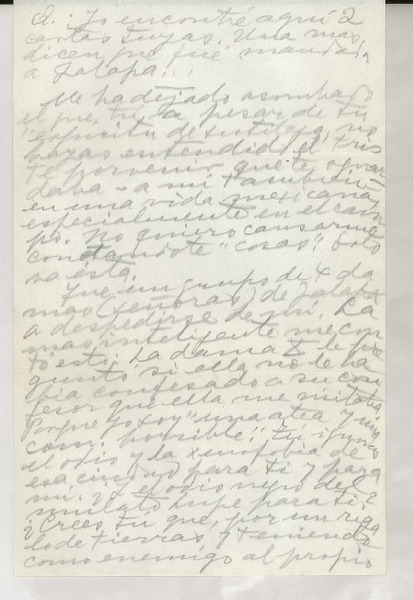 Q.: Yo encontré aquí 2
cartas tuyas. Una mas,
dicen que fué mandada
a Jalapa...
Me ha dejado asombrado
el que, tú, a pesar de tu
"espíritu de sutileza", no
hayas entendido el tris
te porvenir que te aguar
daba - a mi también
en una vida mexicana
especialmente en el cam
po. No quiero cansarme
contandote "cosas"! Solo
va ésta.
Fué un grupo de 4 da
mas (señoras) de Jalapa
a despedirse de mi. La
mas inteligente me con
tó esto: La dama X le pre
guntó si ella no le ha
bía confesado a su con
fesor que ella me visitaba
Porque yo soy "una atea y una
com. horrible". Tú ignoras
el odio y la xenofobia de
esa para ti y para
mi. Y el odio negro del
mulato Lupe para ti.
¿Crees tu que, por un rega
lo de tierras, y teniendo
como enemigo al propio